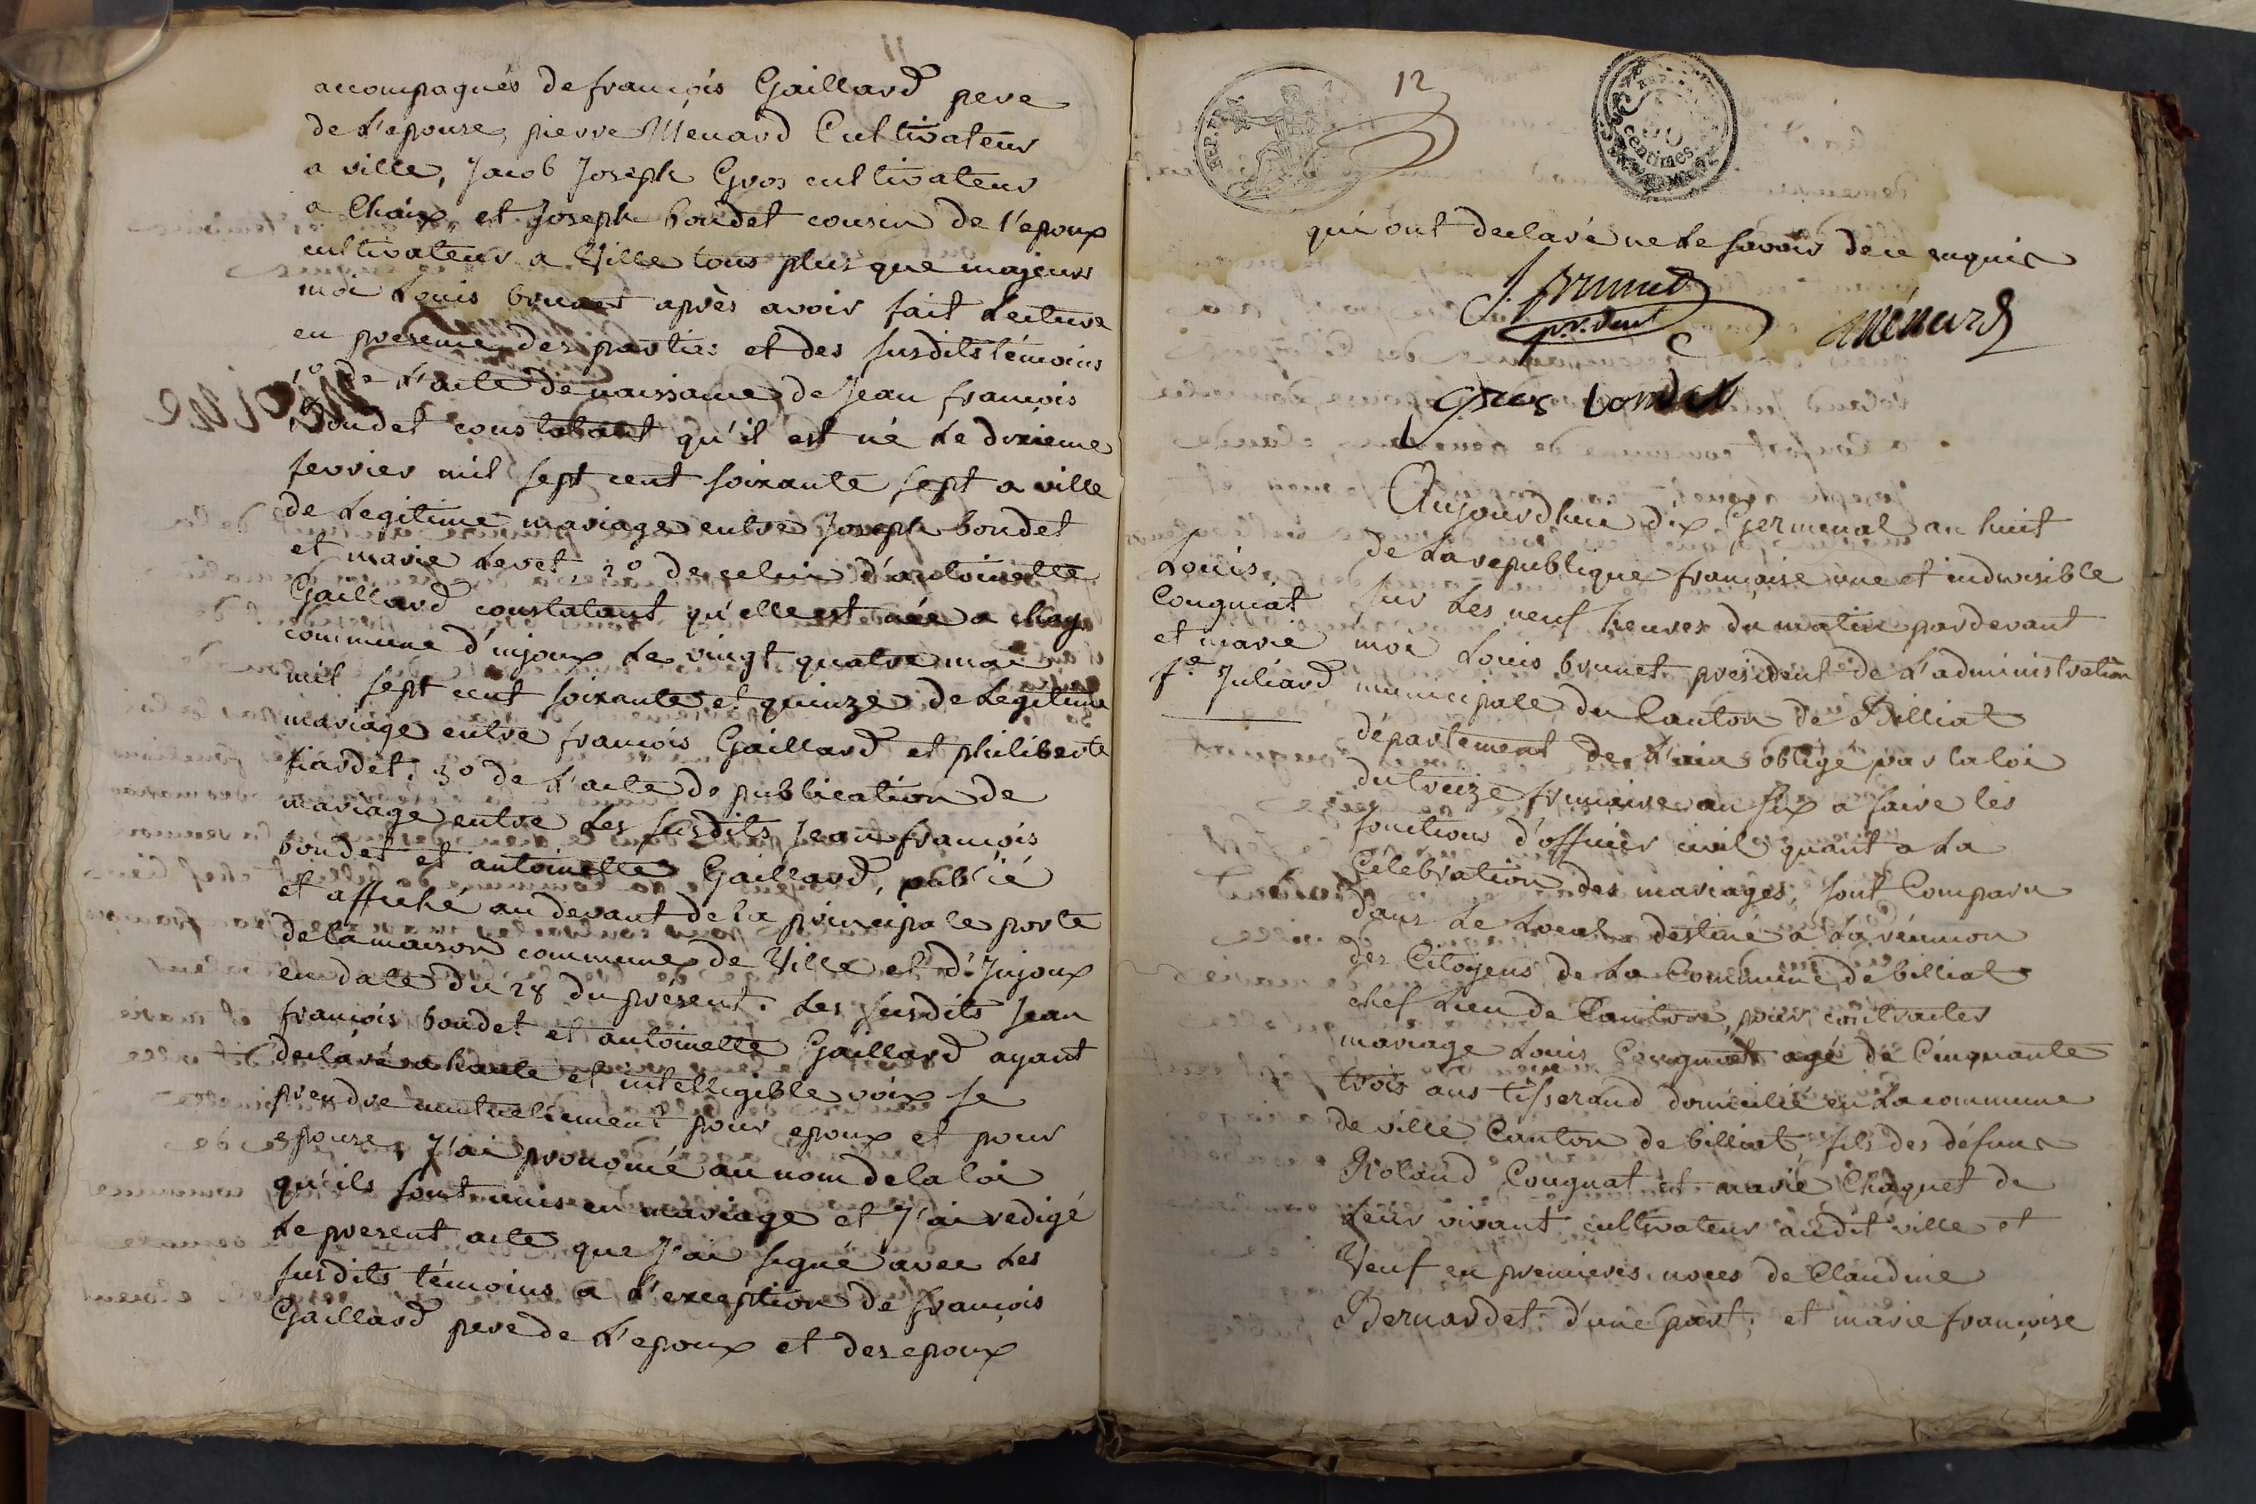 accompagnés de françois Gaillard pere
de L'epouse, pierre Menard Cultivateur
a ville, Jacob Joseph Gros cultivateur
a Chaix et Joseph boudet cousin de l'epoux
cultivateur a Ville tous plus que majeurs
moi Louis brunet après avoir fait Lecture
en presence des parties et des susdits témoins
1° de L'acte de naissance de Jean françois
Boudet constatant qu'il est né Le dixieme
fevrier mil sept cent soixante sept a ville
de Legitime mariage entre Joseph boudet
et marie Levet 2° de celui d'antoinette
Gaillard constatant qu'elle est née a
commune d'injoux Le vingt quatre mai
mil sept cent soixante et quinze de Légitime
mariage entre françois Gaillard et philiberte
tiardet, 3° de L'acte de publication de
mariage entre Les susdits Jean françois
boudet et antoinette Gaillard, publié
et affiché au devant de la principale porte
de la maison commune de Ville et d'Injoux
en date du 28 du présent. Les susdits Jean
françois boudet et antoinette Gaillard ayant
declaré a haute et intelligible voix se
prendre mutuellement pour epoux et pour
epouse, J'ai prononcé au nom de la loi
qu'ils sont unis en mariage et J'ai redigé
Le present acte que J'ai signé avec Les
susdits témoins a L'exception de françois
Gaillard pere de L'epoux et des epoux
12
REP. FRA.
centimes
qui ont declaré ne Le savoir de ce enquis
L. brunet
pr.dent
Ménard
gros boudet
Louis
Cougnat
et marie
f.e Juliard
Aujourdhui dix Germinal an huit
de La republique française une et indivisible
sur Les neuf heures du matin pardevant
moi Louis brunet président de L'administration
municipale du Canton de Billiat
département de L'ain obligé par la loi
du treize frimaire an six a faire les
fonctions d'officier civil quant a La
Célébration des mariages, sont Comparu
dans Le Local destiné a La réunion
des Citoyens de La Commune de billiat
chef Lieu de Canton, pour contracter
mariage Louis Cougnat agé de Cinquante
trois ans tisserand domicilié en La commune
de ville Canton de billiat, fils des défunc
Roland Cougnat et marie Chaquet de
Leur vivant cultivateur audit ville et
Veuf en premieres noces de Claudine
Bernardet d'une part, et marie françoise